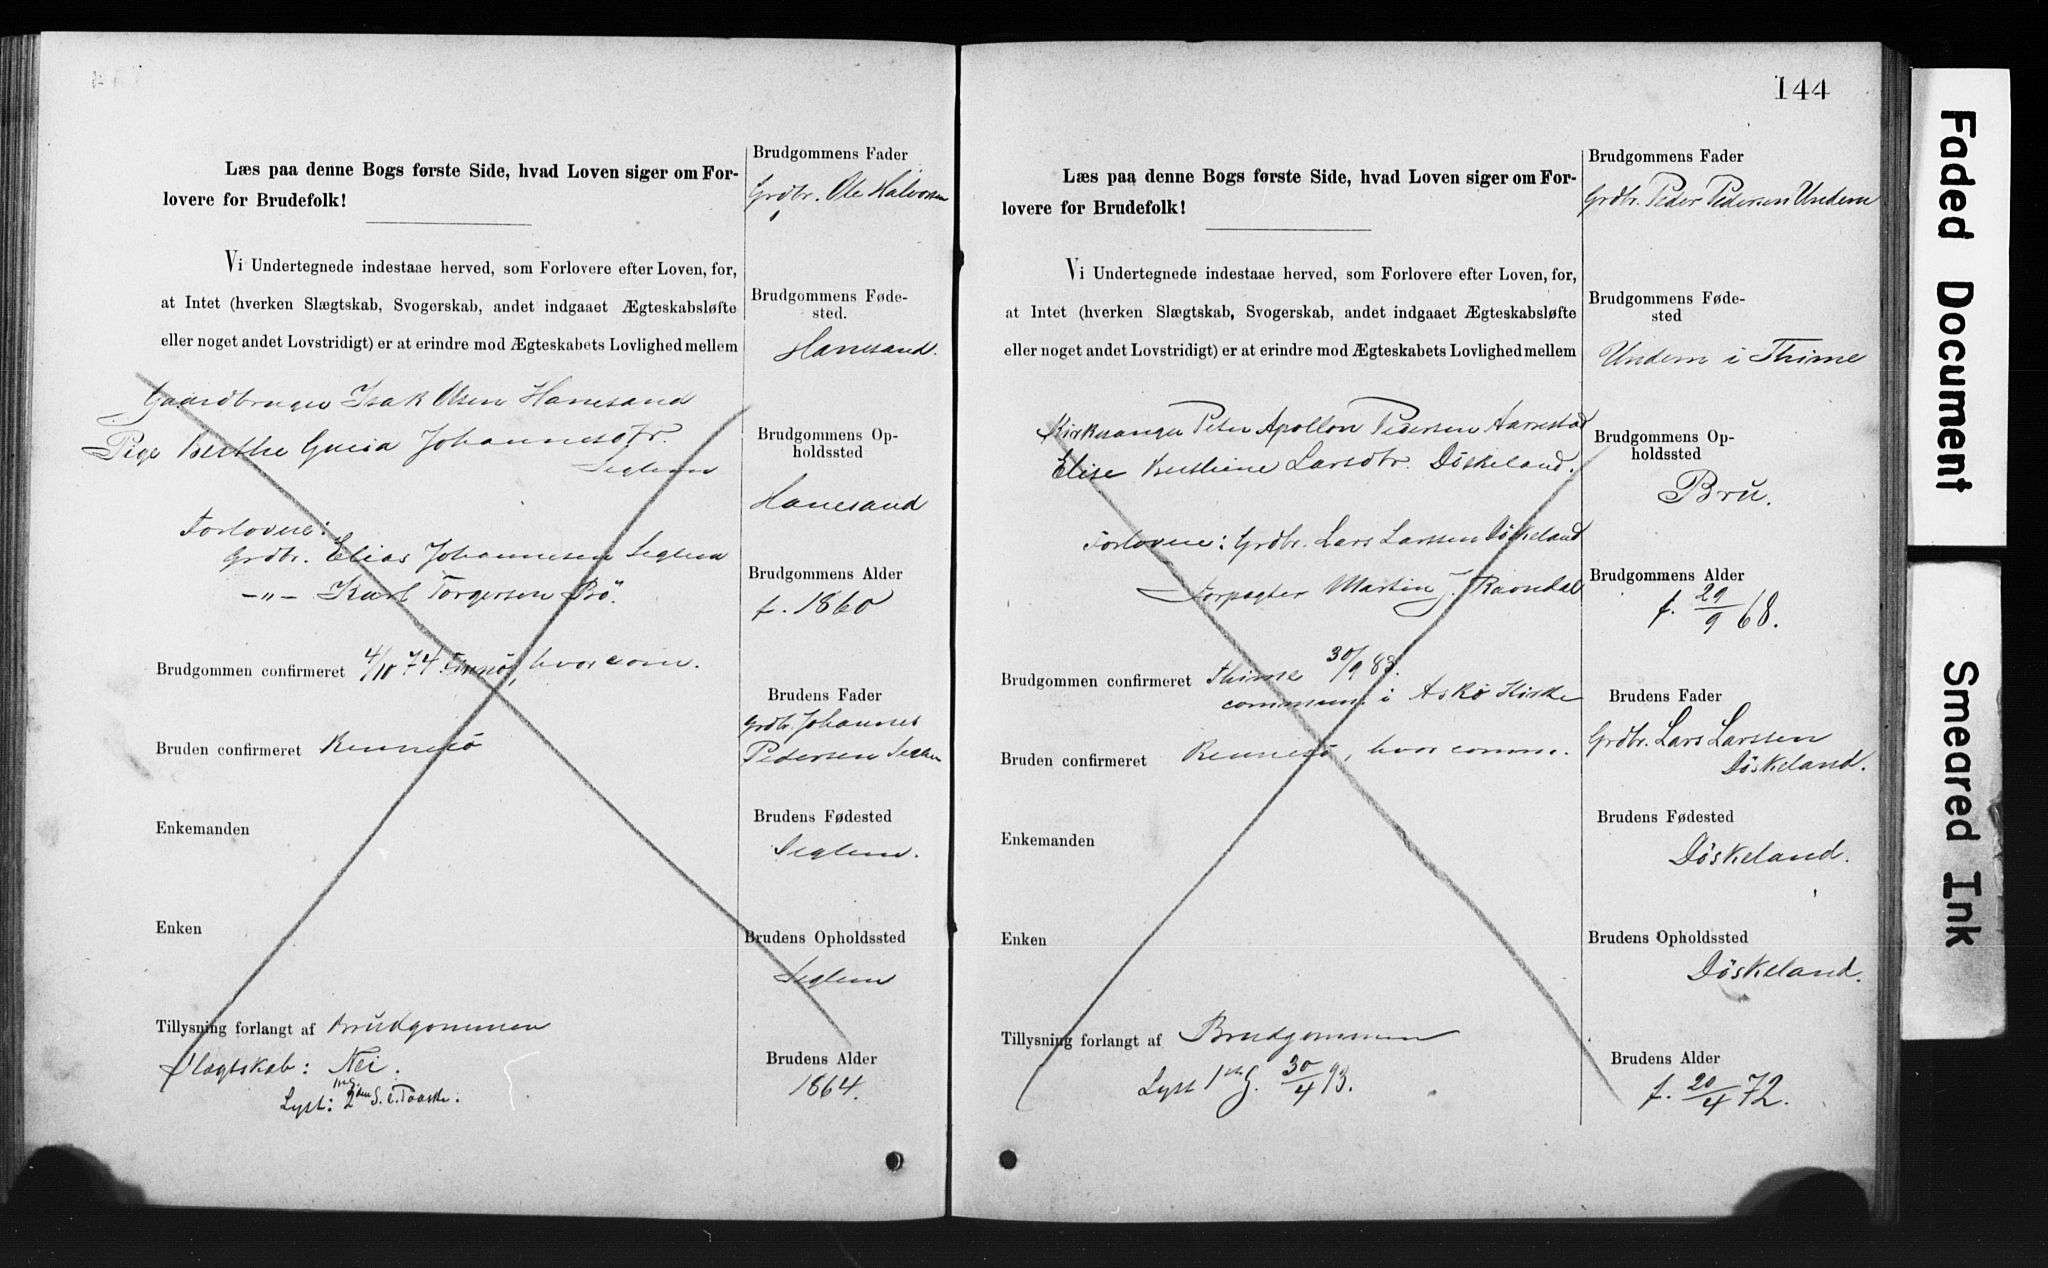 Læs paa denne Bogs første Side, hvad Loven siger om For-
lovere for Brudefolk!
Vi Undertegnede indestaae herved, som Forlovere efter Loven, for,
at Intet (hverken Slægtskab, Svogerskab, andet indgaaet Ægteskabsløfte
eller noget andet Lovstridigt) er at erindre mod Ægteskabets Lovlighed mellem
Gaardbruger Isak Olsen Hanesand
Pige Berthe Johannesdtr.
Seglem
Forlovere:
Grdbr. Elias Johannesen Seglem
-"- Karl Torgersen Bö.
Brudgommen confirmeret 4/10 74 hvor com.
Bruden confirmeret Rennesö
Enkemanden
Enken
Tillysning forlangt af Brudgommen
Slægtskab: Nei.
Lyst: 2den S. e. Paaske.
Brudgommens Fader
Grdbr. Ole Halvorsen
Brudgommens Føde-
sted.
Hanesand.
Brudgommens Op-
holdssted
Hanesand
Brudgommens Alder
f. 1860
Brudens Fader
Grdbr. Johannes
Pedersen Seglem
Brudens Fødested
Seglem.
Brudens Opholdssted
Seglem
Brudens Alder
1864.
144
Læs paa denne Bogs første Side, hvad Loven siger om For-
lovere for Brudefolk!
Vi Undertegnede indestaae herved, som Forlovere efter Loven, for,
at Intet (hverken Slægtskab, Svogerskab, andet indgaaet Ægteskabsløfte
eller noget andet Lovstridigt) er at erindre mod Ægteskabets Lovlighed mellem
Kirkesanger Peter Apollon Pedersen Aarrestad
Elise Larsdtr. Döskeland.
Forlovere: Grdbr. Lars Larssen Döskeland
Forpagter Martin J. Ravndal
Brudgommen confirmeret Thime 30/9 83.
commun. i Askö Kirke
Bruden confirmeret Rennesö, hvor comm.
Enkemanden
Enken
Tillysning forlangt af Brudgommen
Lyst 1ste G. 30/4 93.
Brudgommens Fader
Grdbr. Peder Pedersen Undem
Brudgommens Føde-
sted
Undem i Thime
Brudgommens Op-
holdssted
Bru.
Brudgommens Alder
f. 29/9 68.
Brudens Fader
Grdbr. Lars Larssen
Döskeland.
Brudens Fødested
Döskeland.
Brudens Opholdssted
Döskeland.
Brudens Alder
f. 20/4 72.
Faded Document
Smeared Ink